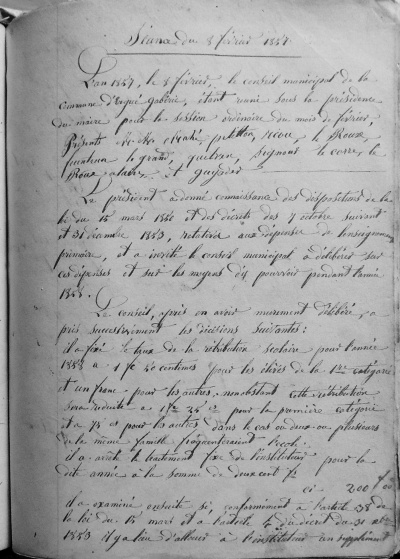 Séance du 8 février 1857.
L'an 1857, le 8 février, le conseil municipal de la
commune d'Ergué gabéric, étant réuni sous la présidence
du maire pour la session ordinaire du mois de février,
Présents
le grand, le corre, le
Roux et
Le président a donné connaissance des dispositions de la
loi du 15 mars 1850 et des décrets des 7 octobre suivant
et 31 décembre 1853, relatives aux dépenses de l'enseignement
primaire, et a invité le conseil municipal a délibérer sur
ces dépenses et sur les moyens d'y pourvoir pendant l'année
1858.
Le conseil, après en avoir murement délibéré, a
pris successivement les décisions suivantes:
il a fixé le taux de la rétribution scolaire pour l'année
1858 a 1 fc 50 centimes pour les élèves de la 1ère catégorie
et un franc pour les autres. nonobstant cette rétribution
sera réduite a 1 fc 25 ct pour la première catégorie
et a 75 ct pour les autres dans le cas ou deux ou plusieurs
de la même famille fréquenteraient l'école.
il a arrêté le traitement fixe de l'instituteur pour la
dite année à la somme de deux cent fr
ci 200 f 00
il a examiné ensuite si, conformément à l'article 38 de
la loi du 15 mars et a l'article 4 du décret du 31 xbre
1853 il y a lieu d'allouer à l'instituteur un supplément